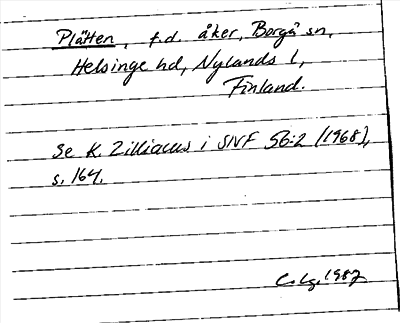 Plätten, f.d. åker, Borgå sn,
Helsinge hd, Nylands l,
Finland.
Se K. Zilliacus i SNF 56:2 (1968),
s. 164.
1987